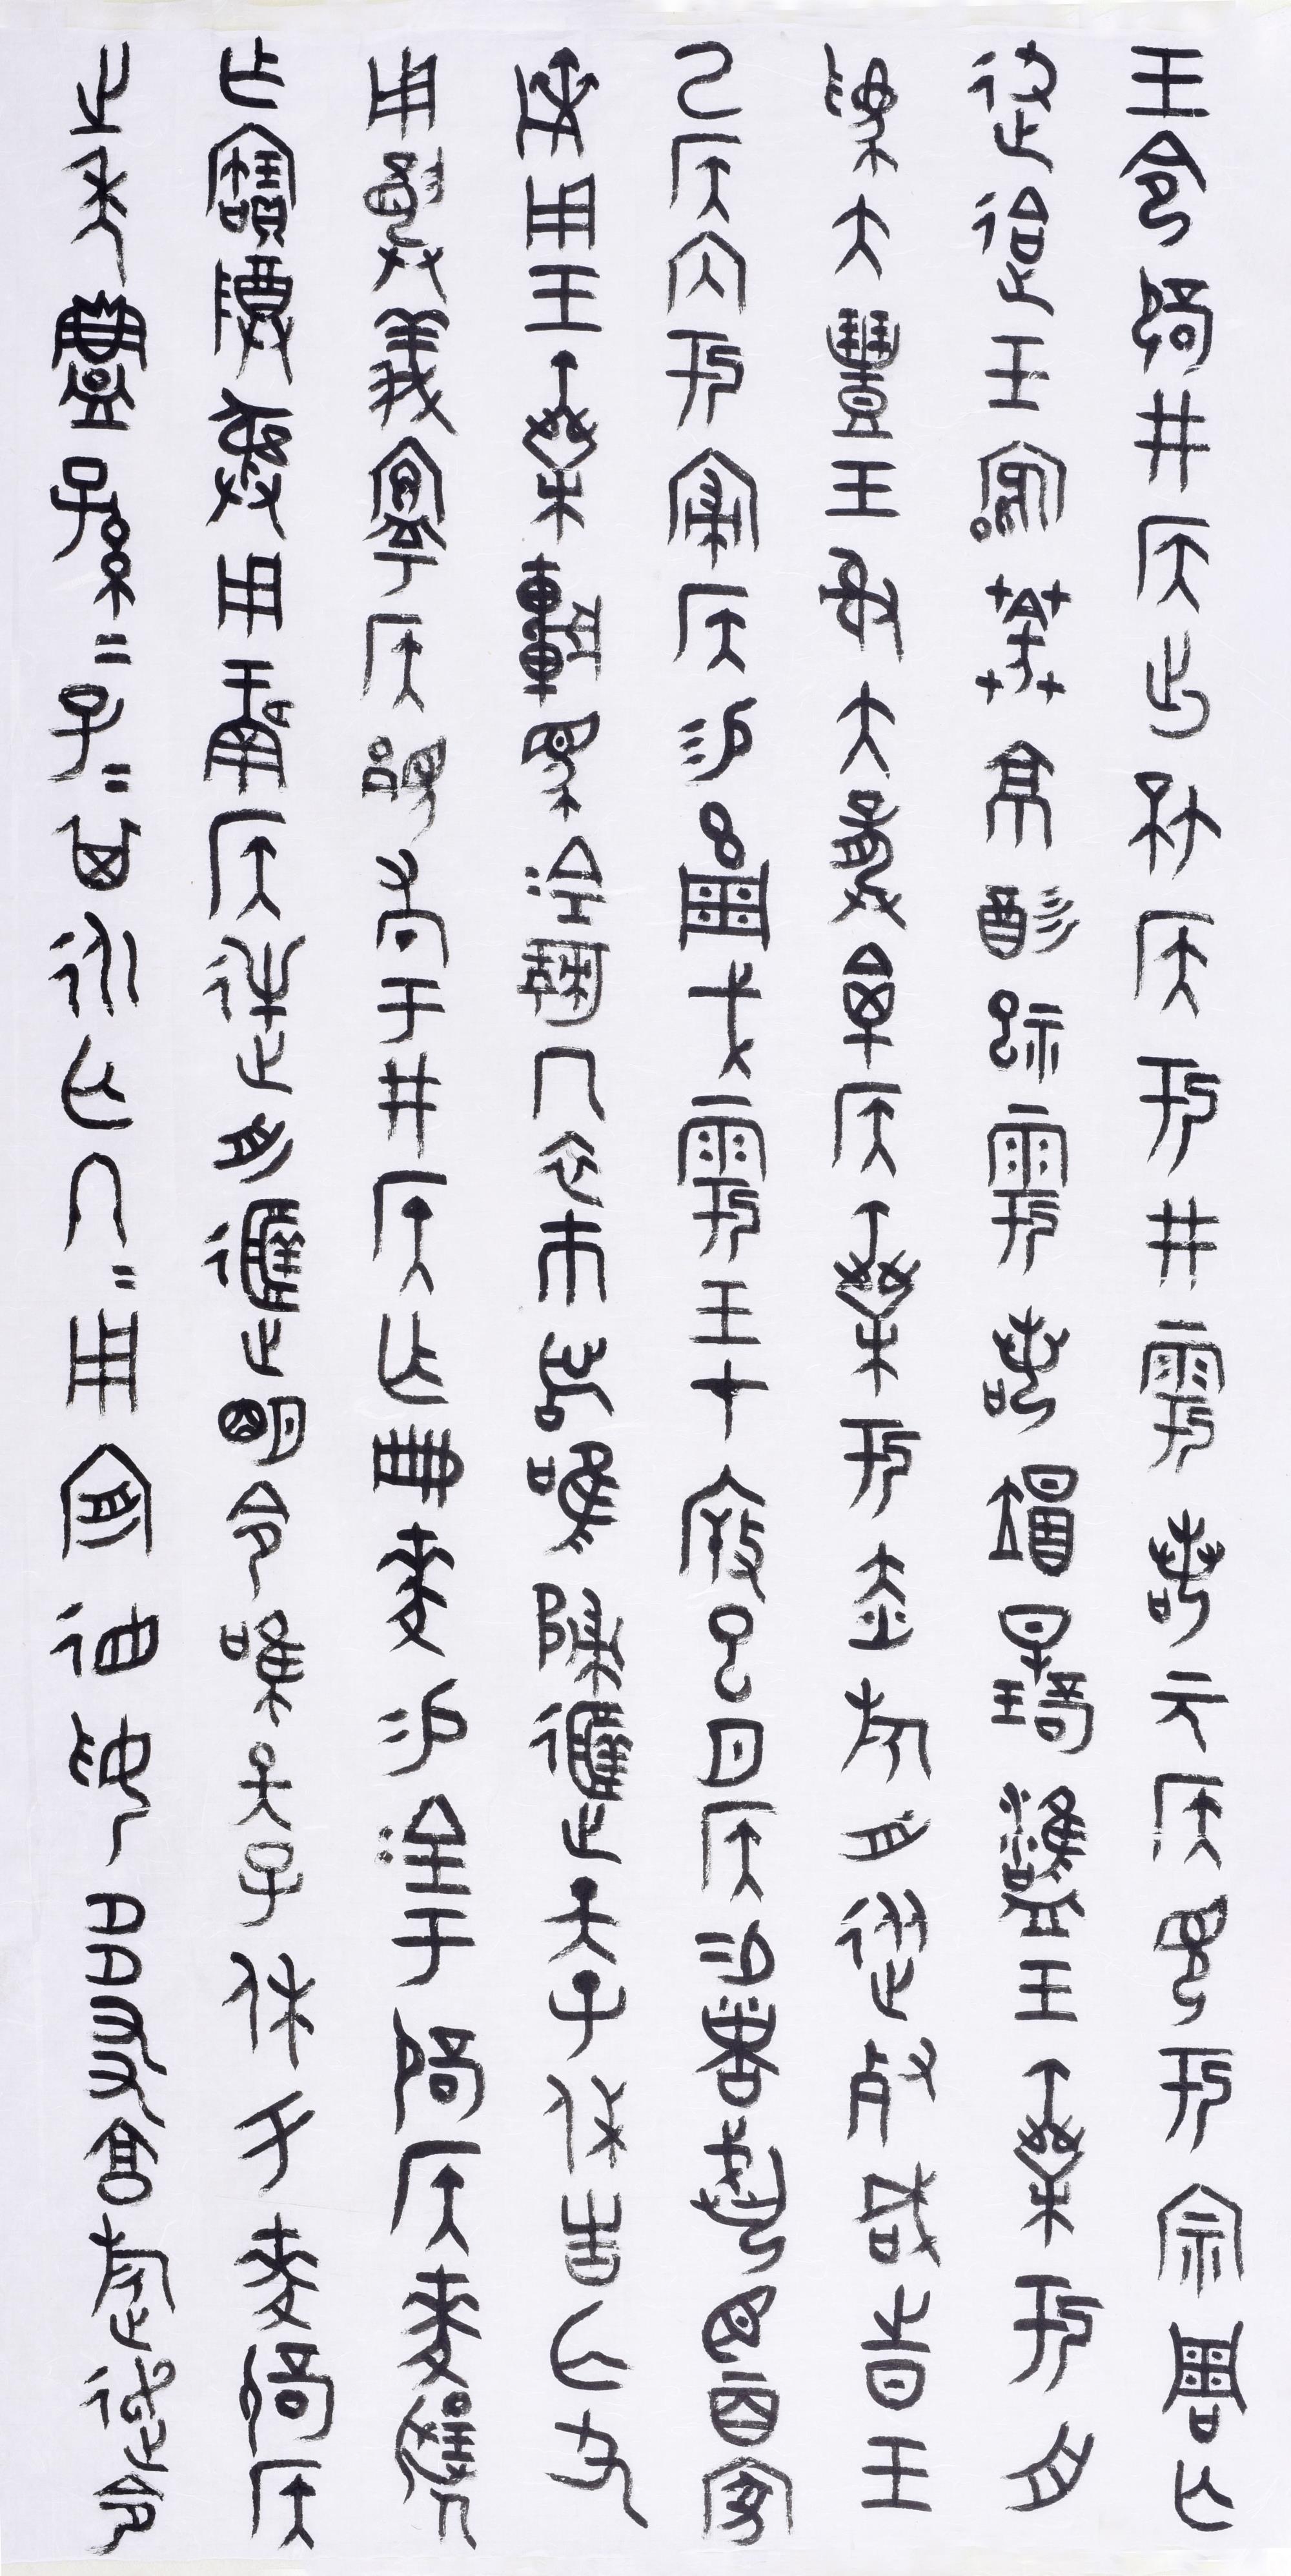 王令辟井侯出坯侯于井雩若元侯見于宗周亡
迨王葊京酓祀雩若翌日才璧雍王乘于舟
為大豐王射大龏禽侯乘于赤旂舟從死咸之日王
以侯內于寑侯易玄周戈雩王才巳夕侯易者臣二百家
劑用王乘車馬金勒冂衣巿舄唯歸遟天子休告亡尤
用龏義寧侯顯孝于井侯乍冊麥易金于辟侯麥揚
乍寶尊彝用侯逆舟遟明令唯天子休于麥辟侯
之年鑄孫二子二其永亡冬二用造德妥多友享旋走令